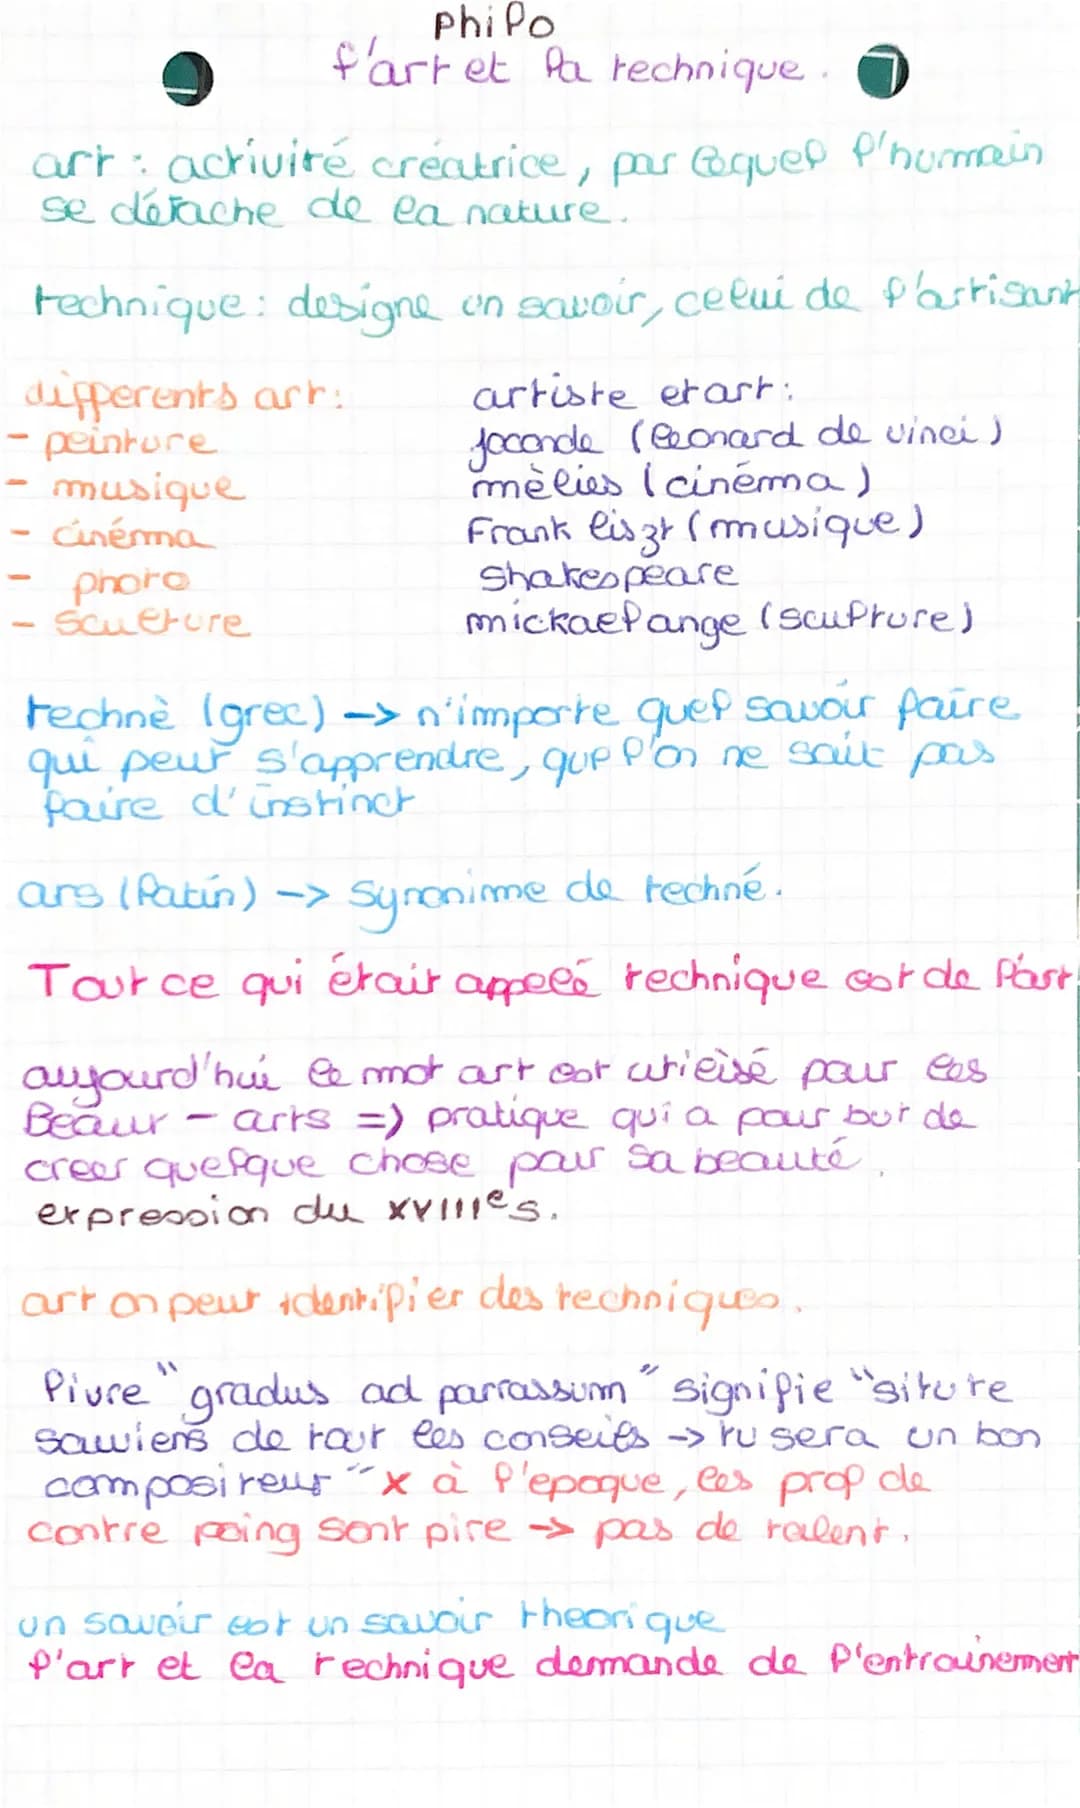 philo
l'art et la technique.
art : activité créatrice, par lequel l'humain
se détache de la nature.
technique : designe un savoir, celui de l'artisant
differents art :
- peinture
- musique
- cinéma
- photo
- sculture
artiste et art :
joconde (leonard de vinci)
mèlies (cinéma)
Frank liszt (musique)
shakespeare
mickael ange (sculpture)
technè (grec) -> n'importe quel savoir faire
qui peut s'apprendre, que l'on ne sait pas
faire d'instinct
ars (latin) -> synonimme de techné.
Tout ce qui était appelé technique est de l'art
aujourd'hui le mot art est utilisé pour les
Beaux - arts => pratique qui a pour but de
creer quelque chose pour sa beauté.
expression du XVIIIe s.
art on peut identifier des techniques.
livre "gradus ad parrassum" signifie "si tu te
souviens de tout les conseils -> tu sera un bon
compositeur" x à l'epoque, les prof de
contre poing sont pire -> pas de talent.
un savoir est un savoir theorique
l'art et la technique demande de l'entrainement